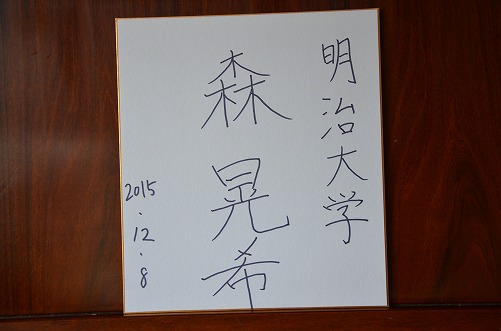 明治大学
森晃希
2015.12.8